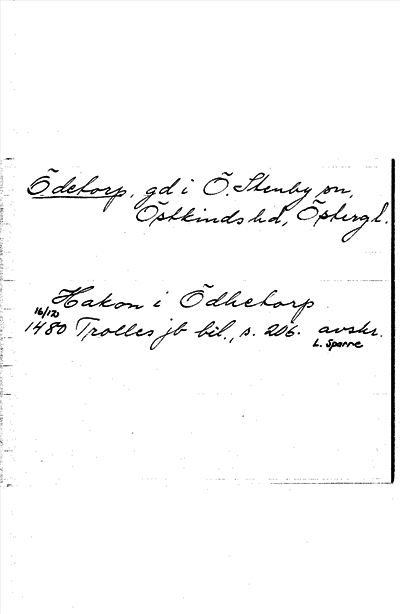 Ödetorp, gd i Ö. Stenby sn,
Östkinds hd, Östergl.
Hakon i Ödhetorp
16/12
1480 Trolles jb bil., s. 206. avskr.
L. Sparre